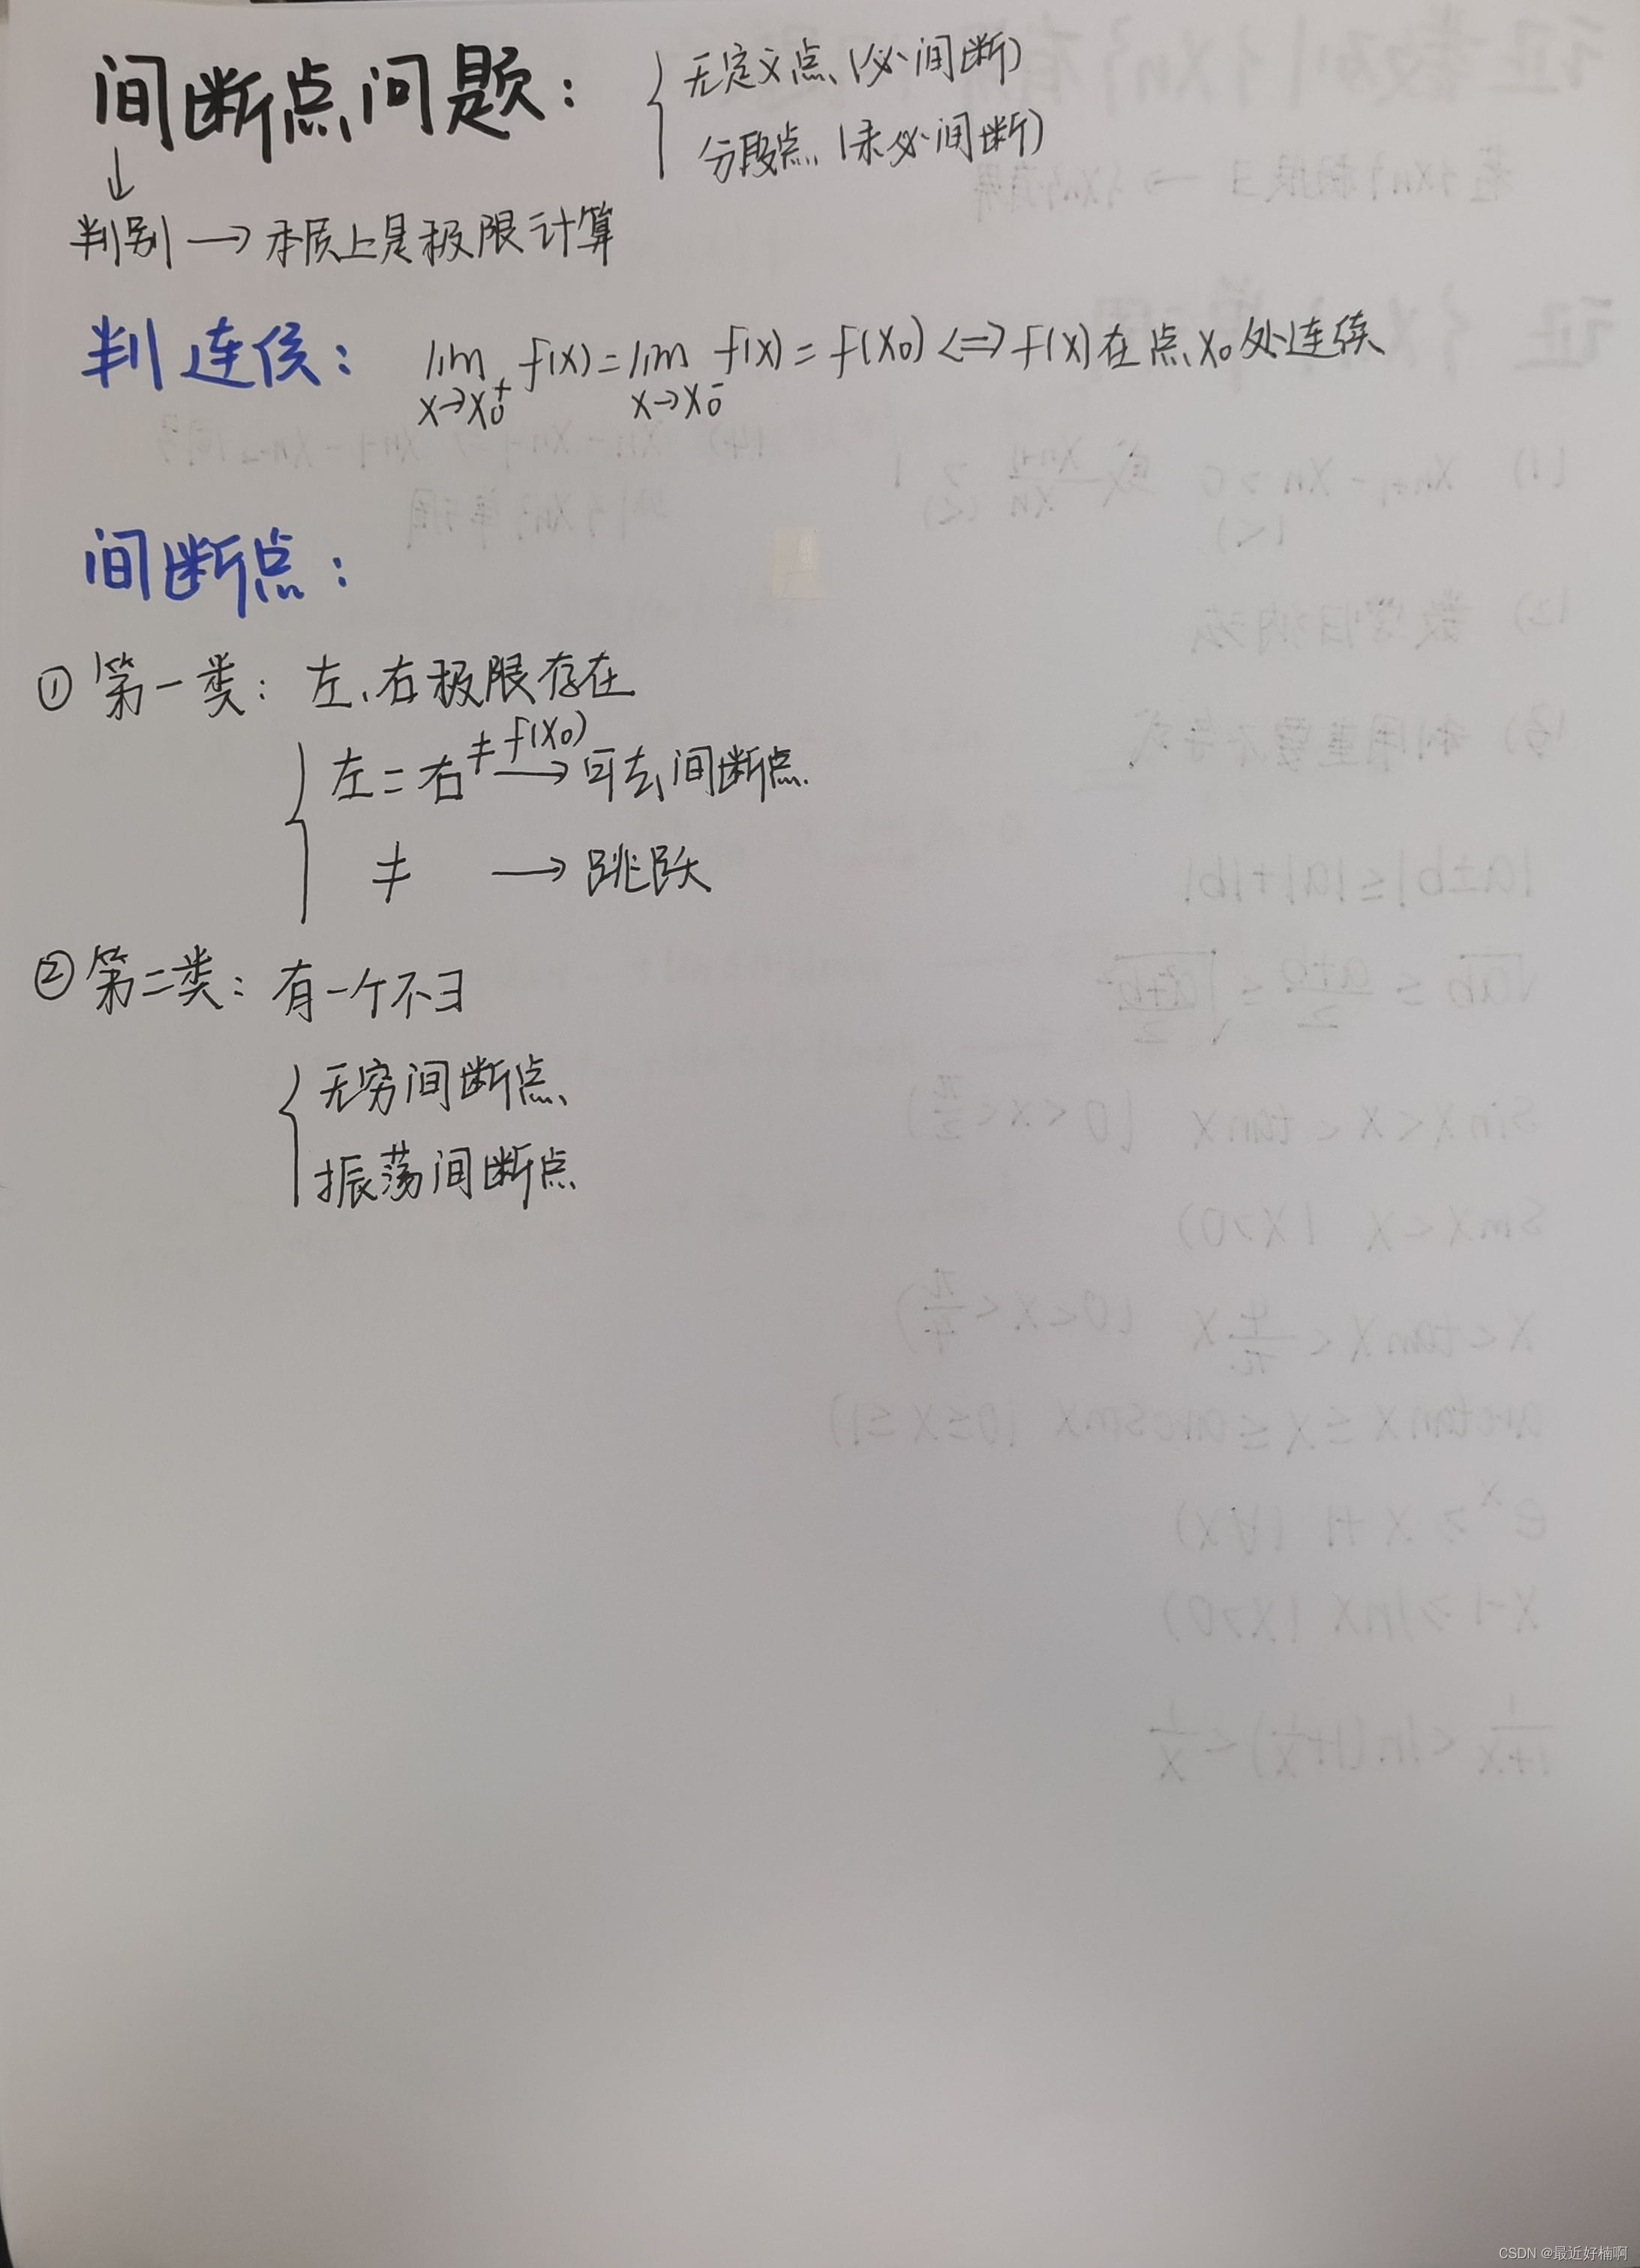 间断点问题：
{ 无定义点（必间断）
分段点（未必间断）
↓
判别 → 本质上是极限计算
判连续： lim x→x₀⁺ f(x) = lim x→x₀⁻ f(x) = f(x₀) <=> f(x)在点x₀处连续
间断点：
① 第一类：左、右极限存在
{ 左=右≠f(x₀) → 可去间断点
≠ → 跳跃
② 第二类：有一个不∃
{ 无穷间断点
振荡间断点
CSDN @最近好楠啊